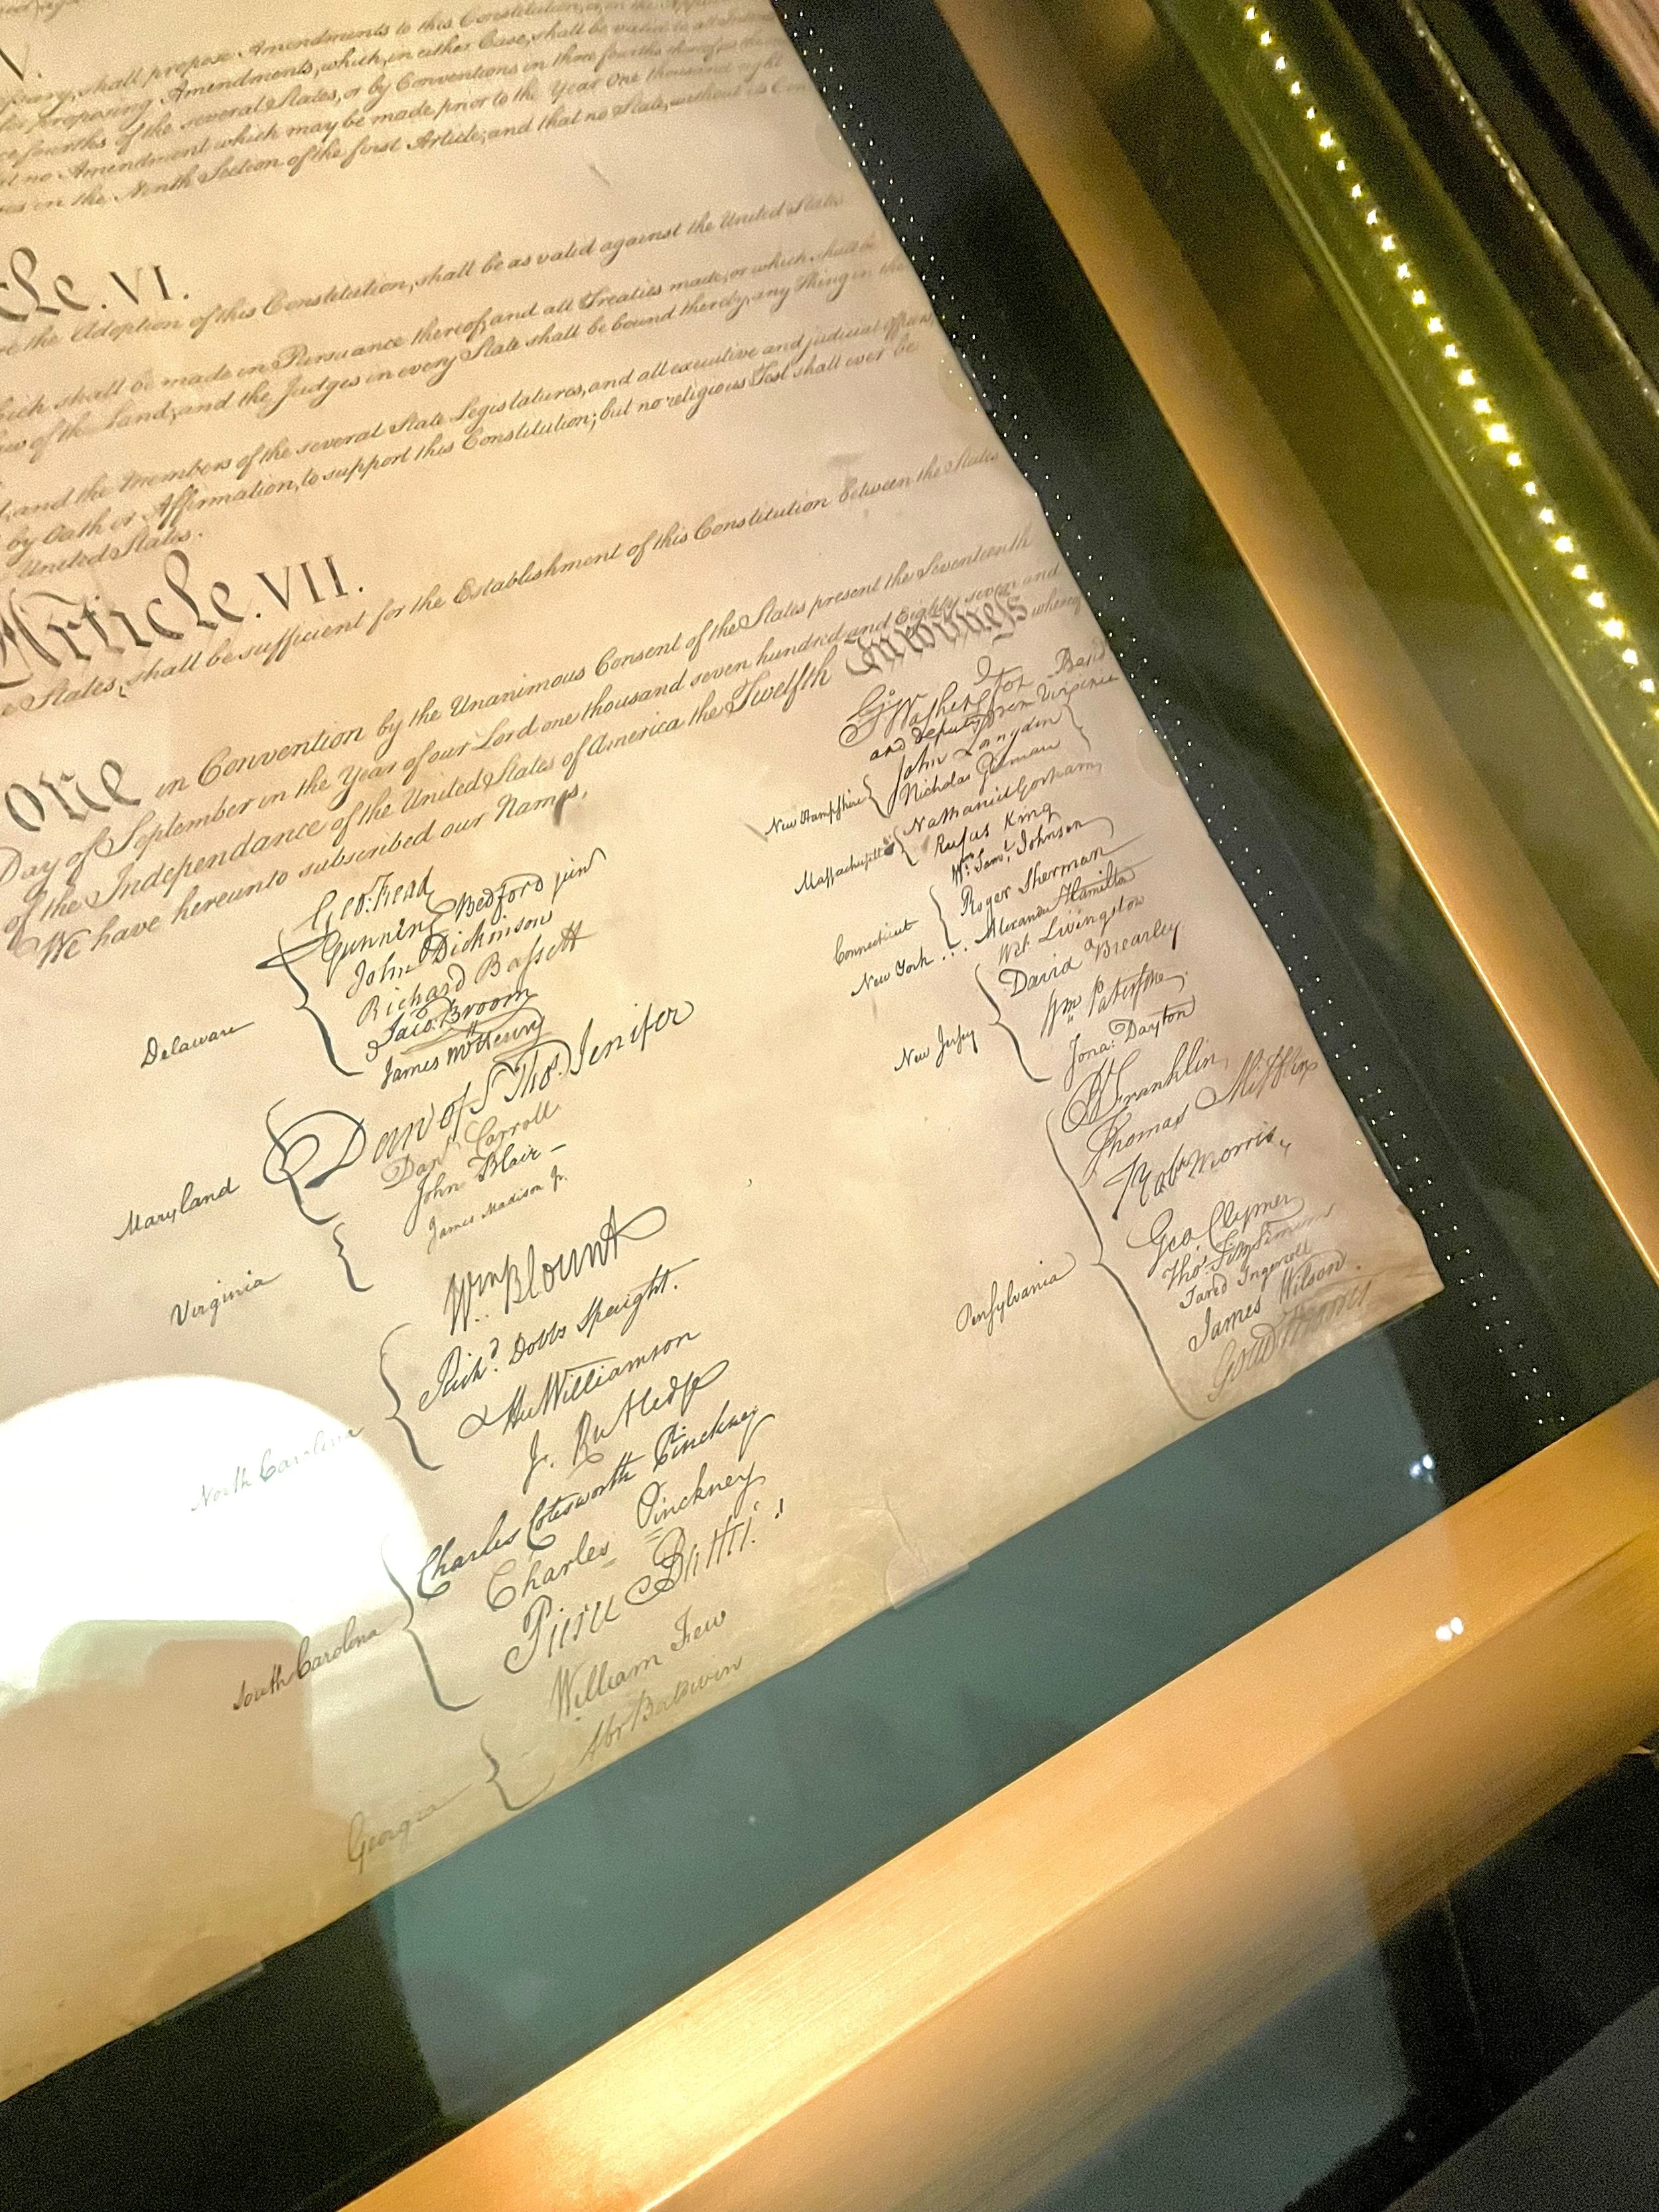 V.
shall propose Amendments to this Constitution, or, on the
for proposing Amendments, which, in either Case, shall be valid to all Intents
fourths of the several States, or by Conventions in three fourths thereof, as the
no Amendment which may be made prior to the Year One thousand eight
in the Ninth Section of the first Article; and that no State, without its
cle. VI.
the Adoption of this Constitution, shall be as valid against the United States
which shall be made in Pursuance thereof; and all Treaties made, or which shall be
of the Land; and the Judges in every State shall be bound thereby, any Thing in the
and the Members of the several State Legislatures, and all executive and judicial Officers,
by Oath or Affirmation, to support this Constitution; but no religious Test shall ever be
United States.
Article. VII.
States, shall be sufficient for the Establishment of this Constitution between the States
one in Convention by the Unanimous Consent of the States present the Seventeenth
Day of September in the Year of our Lord one thousand seven hundred and Eighty seven and
of the Independance of the United States of America the Twelfth In Witness whereof
We have hereunto subscribed our Names,
Delaware
Geo: Read
Gunning Bedford jun
John Dickinson
Richard Bassett
Jaco: Broom
Maryland
James McHenry
Dan of St Thos. Jenifer
Danl Carroll
Virginia
John Blair –
James Madison Jr.
North Carolina
Wm Blount
Richd. Dobbs Spaight.
Hu Williamson
South Carolina
J. Rutledge
Charles Cotesworth Pinckney
Charles Pinckney
Pierce Butler.
Georgia
William Few
Abr Baldwin
Go: Washington
and deputy from Virginia
New Hampshire
John Langdon
Nicholas Gilman
Massachusetts
Nathaniel Gorham
Rufus King
Connecticut
Wm: Saml. Johnson
Roger Sherman
New York . . . Alexander Hamilton
New Jersey
Wil: Livingston
David Brearley
Wm Paterson
Jona: Dayton
Pensylvania
B Franklin
Thomas Mifflin
Robt Morris
Geo. Clymer
Thos. FitzSimons
Jared Ingersoll
James Wilson.
Gouv Morris